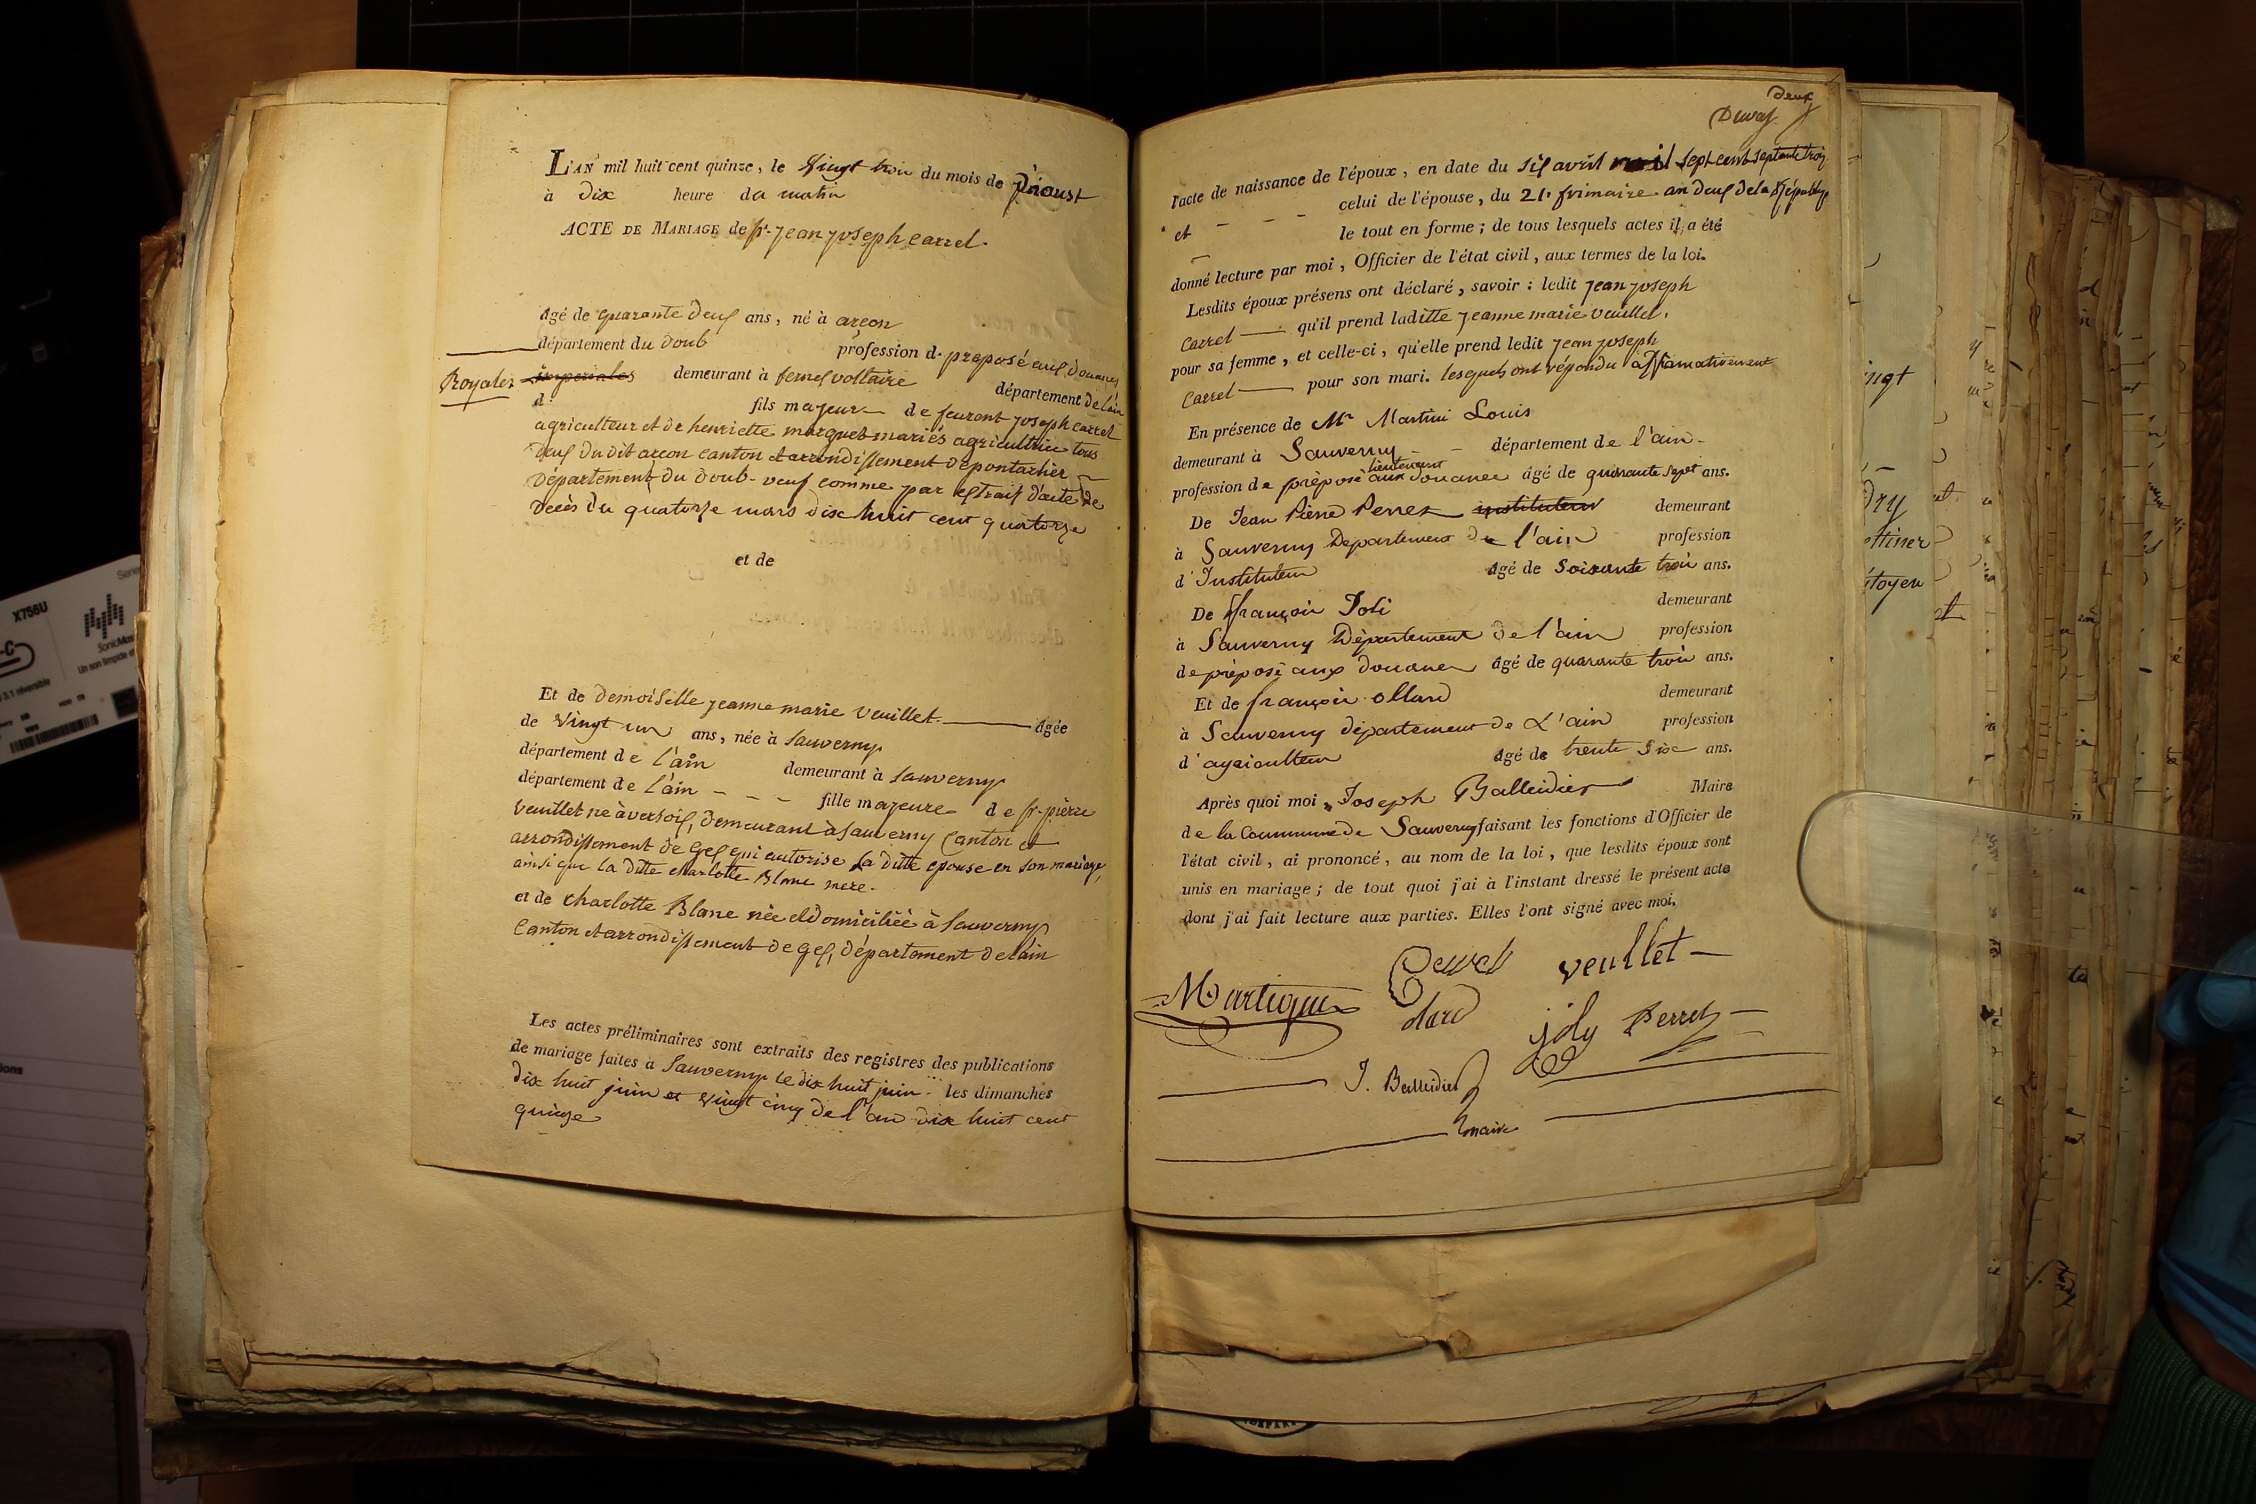 L'AN mil huit cent quinze, le Vingt trois du mois de d'aoust
à dix heure du matin
ACTE DE MARIAGE de Sr. jean joseph carrel.
âgé de quarante deux ans, né à arçon
département du doub profession de preposé aux douanes
Royales imperiales demeurant à fernex voltaire département de l'ain
d. fils majeur de feu ront joseph carrel
agriculteur et de henriette marguet mariés agricultrice tous
deux du dit arcon canton et arrondissement de pontarlier
Département du doub - veuf comme par extrait d'acte de
décès du quatorze mars dix huit cent quatorze
et de
Et de demoiselle jeanne marie veuillet âgée
de vingt un ans, née à Sauverny
département de l'ain demeurant à Sauverny
département de l'ain - - - fille majeure de sr. pièrre
veuillet né à versoix, demeurant à Sauverny Canton et
arrondissement de Gex qui autorise la ditte epouse en son mariage,
ainsi que la ditte charlotte Blanc mere.
et de charlotte Blanc née et domiciliée à Sauverny
Canton et arrondissement de gex, département de l'ain
Les actes préliminaires sont extraits des registres des publications
de mariage faites à Sauverny le dix huit juin les dimanches
dix huit juin et vingt cinq de l'an dix huit cent
quinze
deux
l'acte de naissance de l'époux, en date du six avril mil sept cent septante trois
et - - - celui de l'épouse, du 21. frimaire an deux de la République
le tout en forme ; de tous lesquels actes il a été
donné lecture par moi, Officier de l'état civil, aux termes de la loi.
Lesdits époux présens ont déclaré, savoir : ledit jean joseph
Carrel qu'il prend laditte jeanne marie veuillet,
pour sa femme, et celle-ci, qu'elle prend ledit jean joseph
Carrel pour son mari. lesquels ont répondu affirmativement
En présence de Mr Martini Louis
demeurant à Sauverny - - département de l'ain -
lieutenant
profession de préposé aux douanes âgé de quarante sept ans.
De Jean Pierre Perret instituteur demeurant
à Sauverny Departement de l'ain profession
d'Instituteur âgé de soixante trois ans.
De françois Joli demeurant
à Sauverny Département de l'ain profession
de préposé aux douanes âgé de quarante trois ans.
Et de françois ollard demeurant
à Sauverny département de L'ain profession
d'agriculteur âgé de trente six ans.
Après quoi moi, Joseph Balleidier Maire
de la Commune de Sauverny faisant les fonctions d'Officier de
l'état civil, ai prononcé, au nom de la loi, que lesdits époux sont
unis en mariage ; de tout quoi j'ai à l'instant dressé le présent acte
dont j'ai fait lecture aux parties. Elles l'ont signé avec moi.
veullet
olard
joly Perret
J. Balleidier
maire
X756U